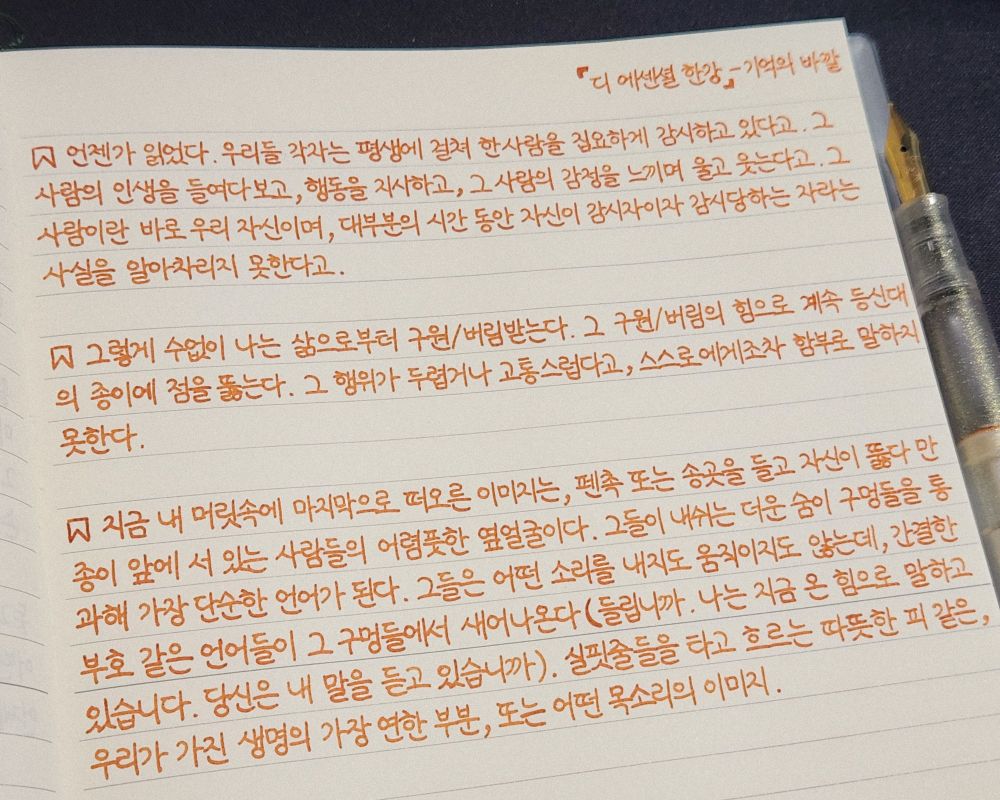 『디 에센셜 한강』-기억의 바깥
언젠가 읽었다. 우리들 각자는 평생에 걸쳐 한사람을 집요하게 감시하고 있다고. 그
사람의 인생을 들여다보고, 행동을 지시하고, 그 사람의 감정을 느끼며 울고 웃는다고. 그
사람이란 바로 우리 자신이며, 대부분의 시간 동안 자신이 감시자이자 감시당하는 자라는
사실을 알아차리지 못한다고.
그렇게 수없이 나는 삶으로부터 구원/버림받는다. 그 구원/버림의 힘으로 계속 등신대
의 종이에 점을 뚫는다. 그 행위가 두렵거나 고통스럽다고, 스스로에게조차 함부로 말하지
못한다.
지금 내 머릿속에 마지막으로 떠오른 이미지는, 펜촉 또는 송곳을 들고 자신이 뚫다 만
종이 앞에 서 있는 사람들의 어렴풋한 옆얼굴이다. 그들이 내쉬는 더운 숨이 구멍들을 통
과해 가장 단순한 언어가 된다. 그들은 어떤 소리를 내지도 움직이지도 않는데, 간결한
부호 같은 언어들이 그 구멍들에서 새어나온다(들립니까. 나는 지금 온 힘으로 말하고
있습니다. 당신은 내 말을 듣고 있습니까). 실핏줄들을 타고 흐르는 따뜻한 피 같은,
우리가 가진 생명의 가장 연한 부분, 또는 어떤 목소리의 이미지.